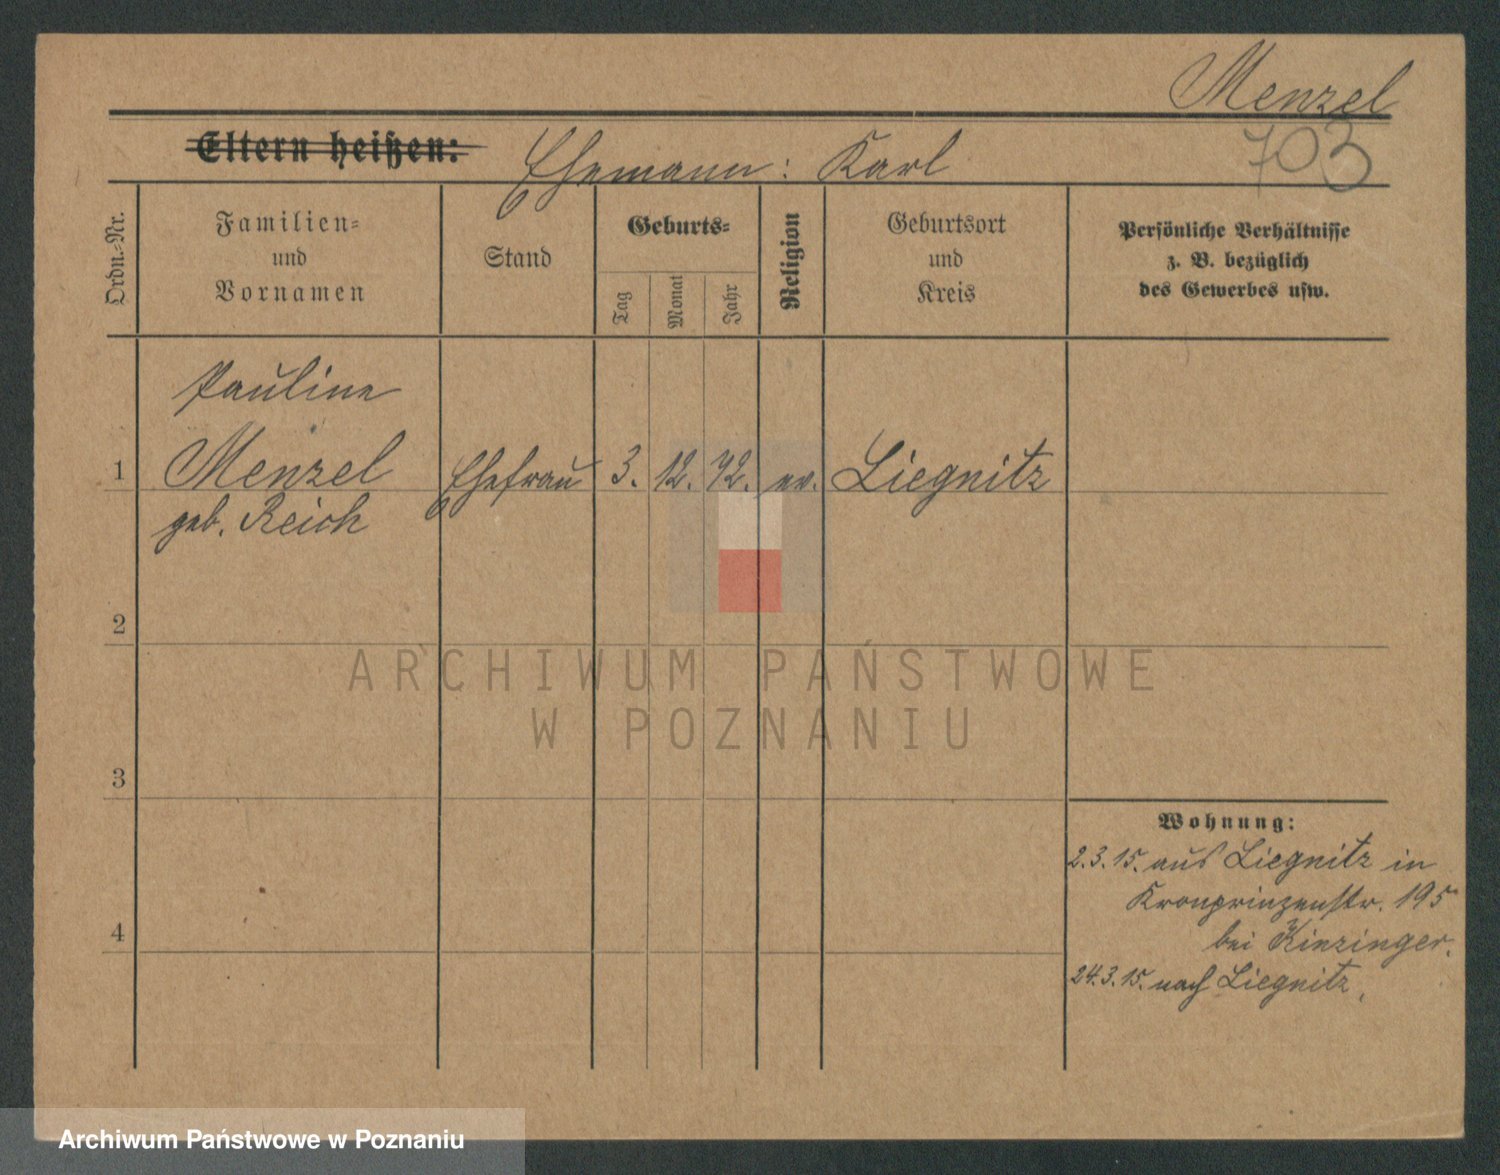 Menzel
703
Eltern heißen: Ehemann: Karl
Ordn.-Nr.
Familien-
und
Vornamen
Stand
Geburts-
Tag
Monat
Jahr
Religion
Geburtsort
und
Kreis
Persönliche Verhältnisse
z. B. bezüglich
des Gewerbes usw.
Pauline
1 Menzel Ehefrau 3. 12. 72. ev. Liegnitz
geb. Reich
2
3
4
Wohnung:
2.3.15. aus Liegnitz in
Kronprinzenstr. 195
bei Kinzinger.
24.3.15. nach Liegnitz.
ARCHIWUM PAŃSTWOWE
W POZNANIU
Archiwum Państwowe w Poznaniu